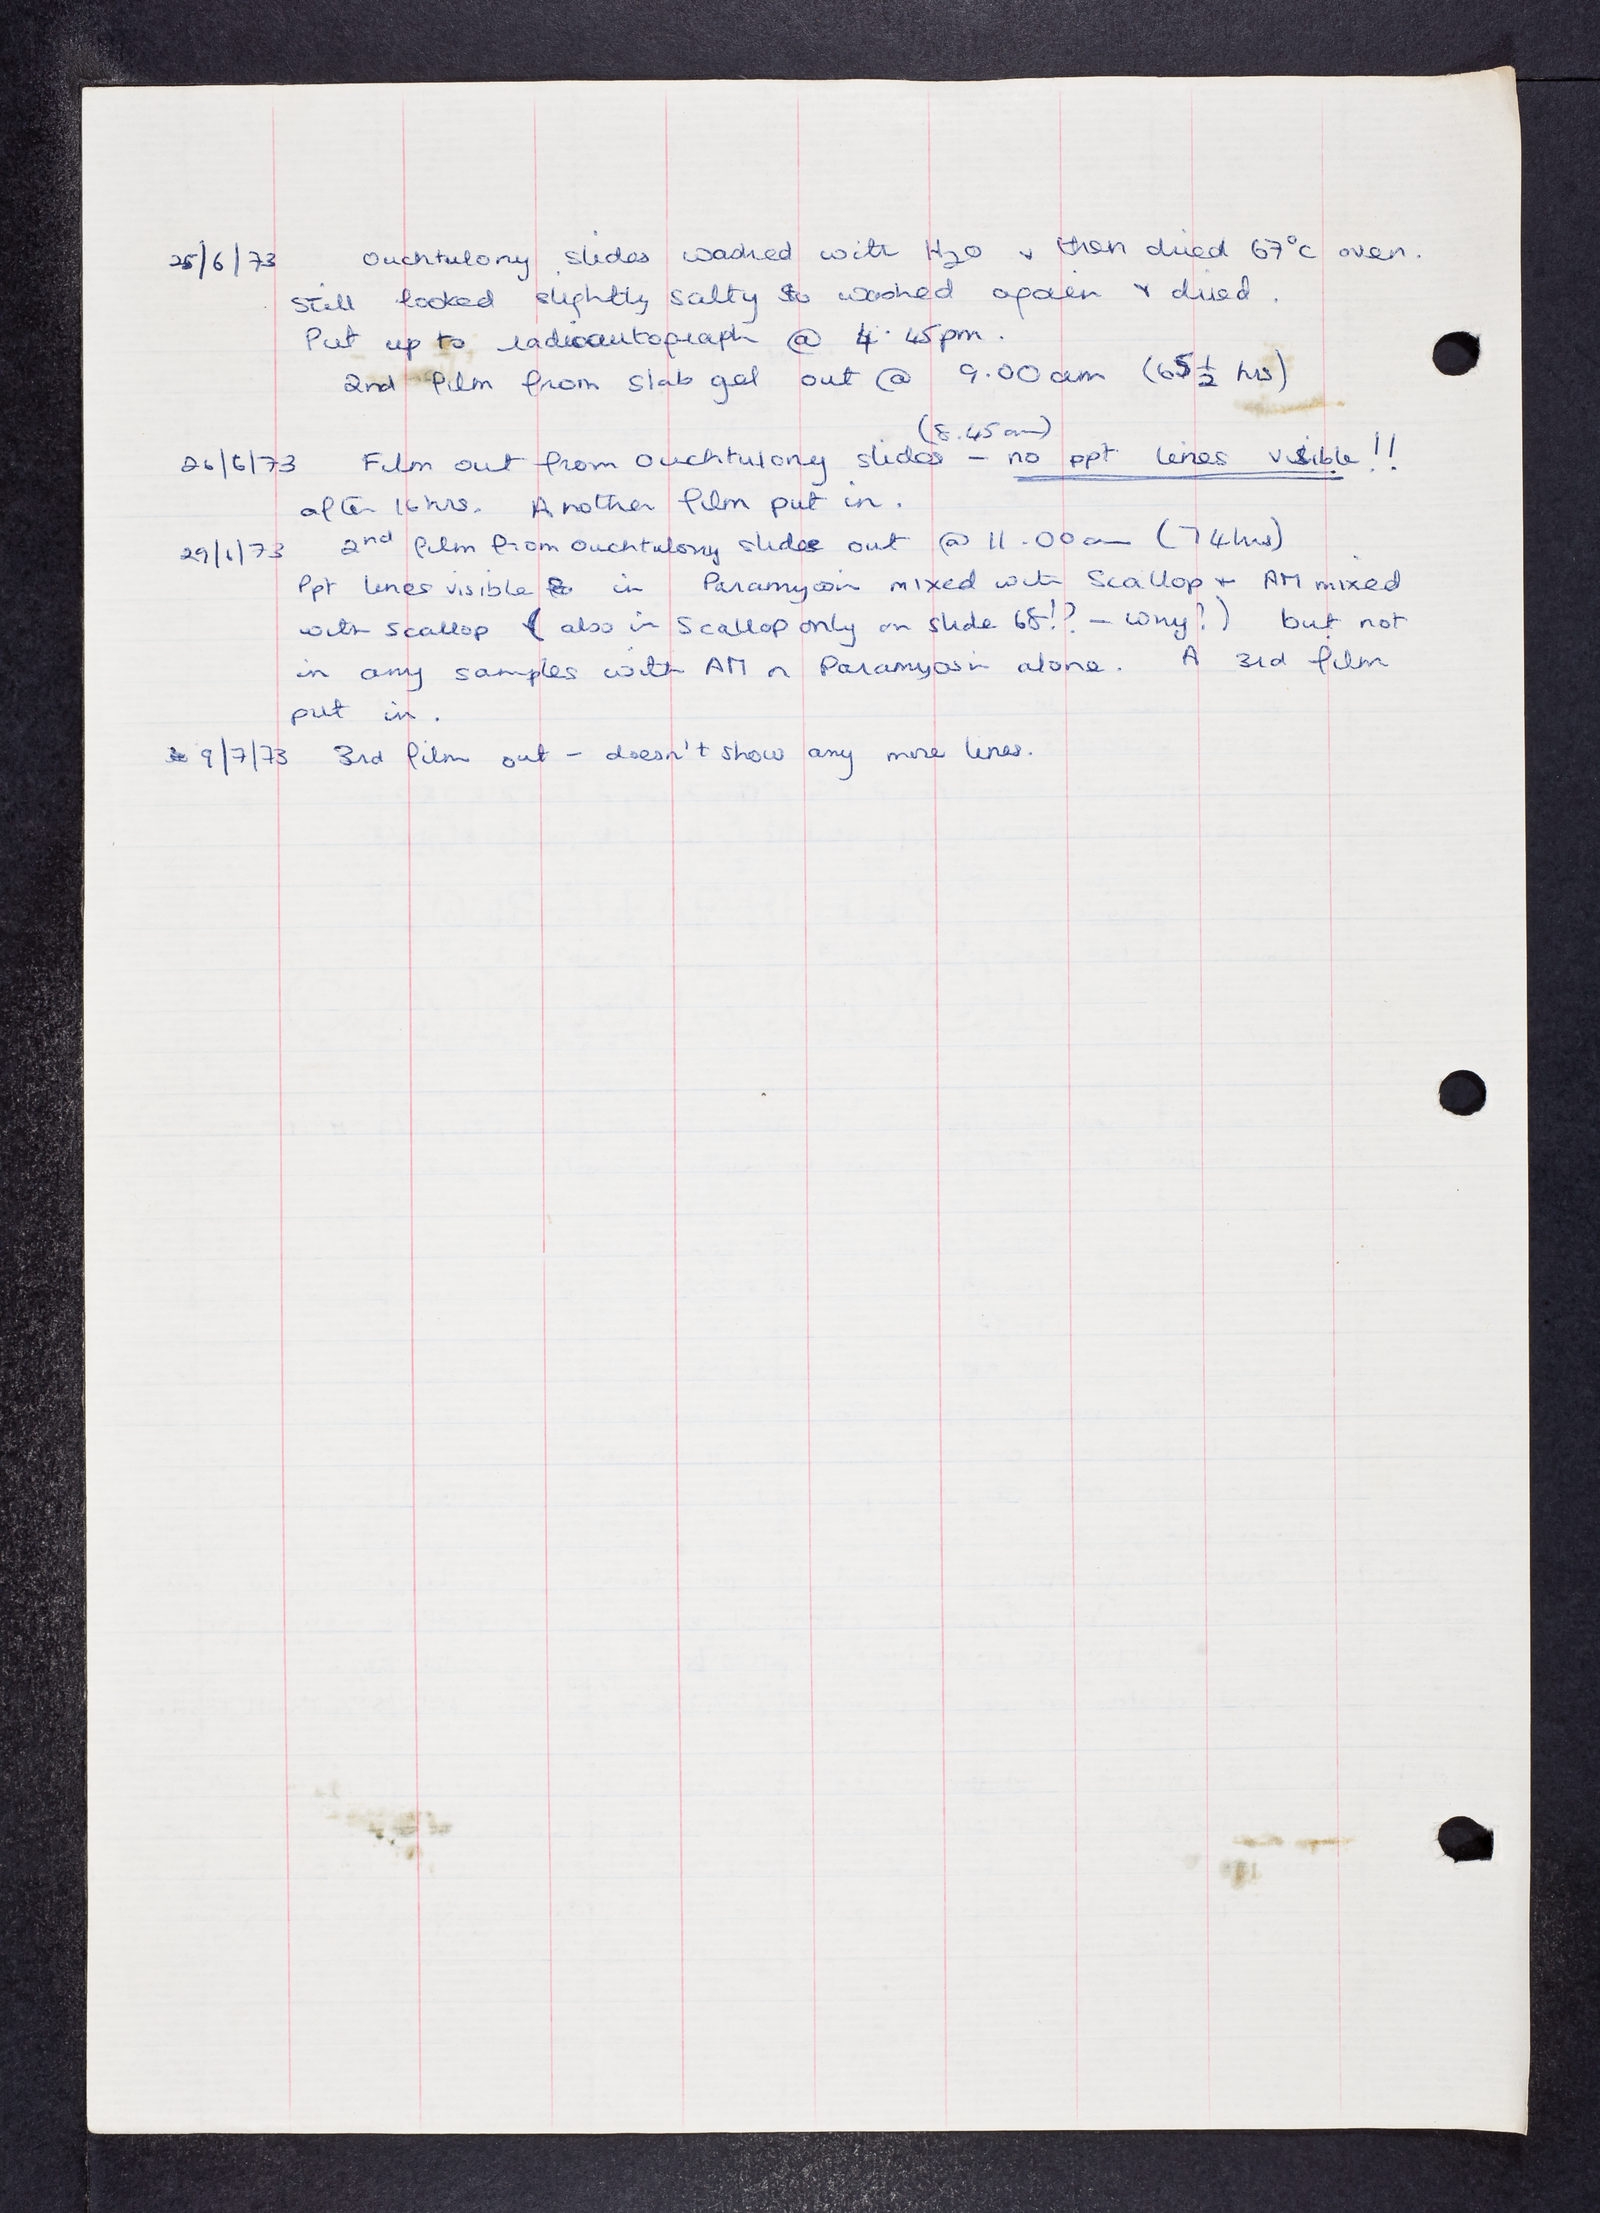 25/6/73 Ouchtulony slides washed with H2O & then dried 67°C oven.
Still looked slightly salty so washed again & dried.
Put up to radioautograph @ 4.45pm.
2nd film from slab gel out @ 9.00 am (65½ hrs)
(8.45 am)
26/6/73 Film out from Ouchtulony slides – no ppt lines visible!!
after 16 hrs. Another film put in.
29/6/73 2nd film from Ouchtulony slides out @ 11.00 am (74hrs)
Ppt lines visible in Paramyosin mixed with Scallop & AM mixed
with Scallop (also in Scallop only on slide 68!? – Why?) but not
in any samples with AM or Paramyosin alone. A 3rd film
put in.
9/7/73 3rd film out – doesn't show any more lines.